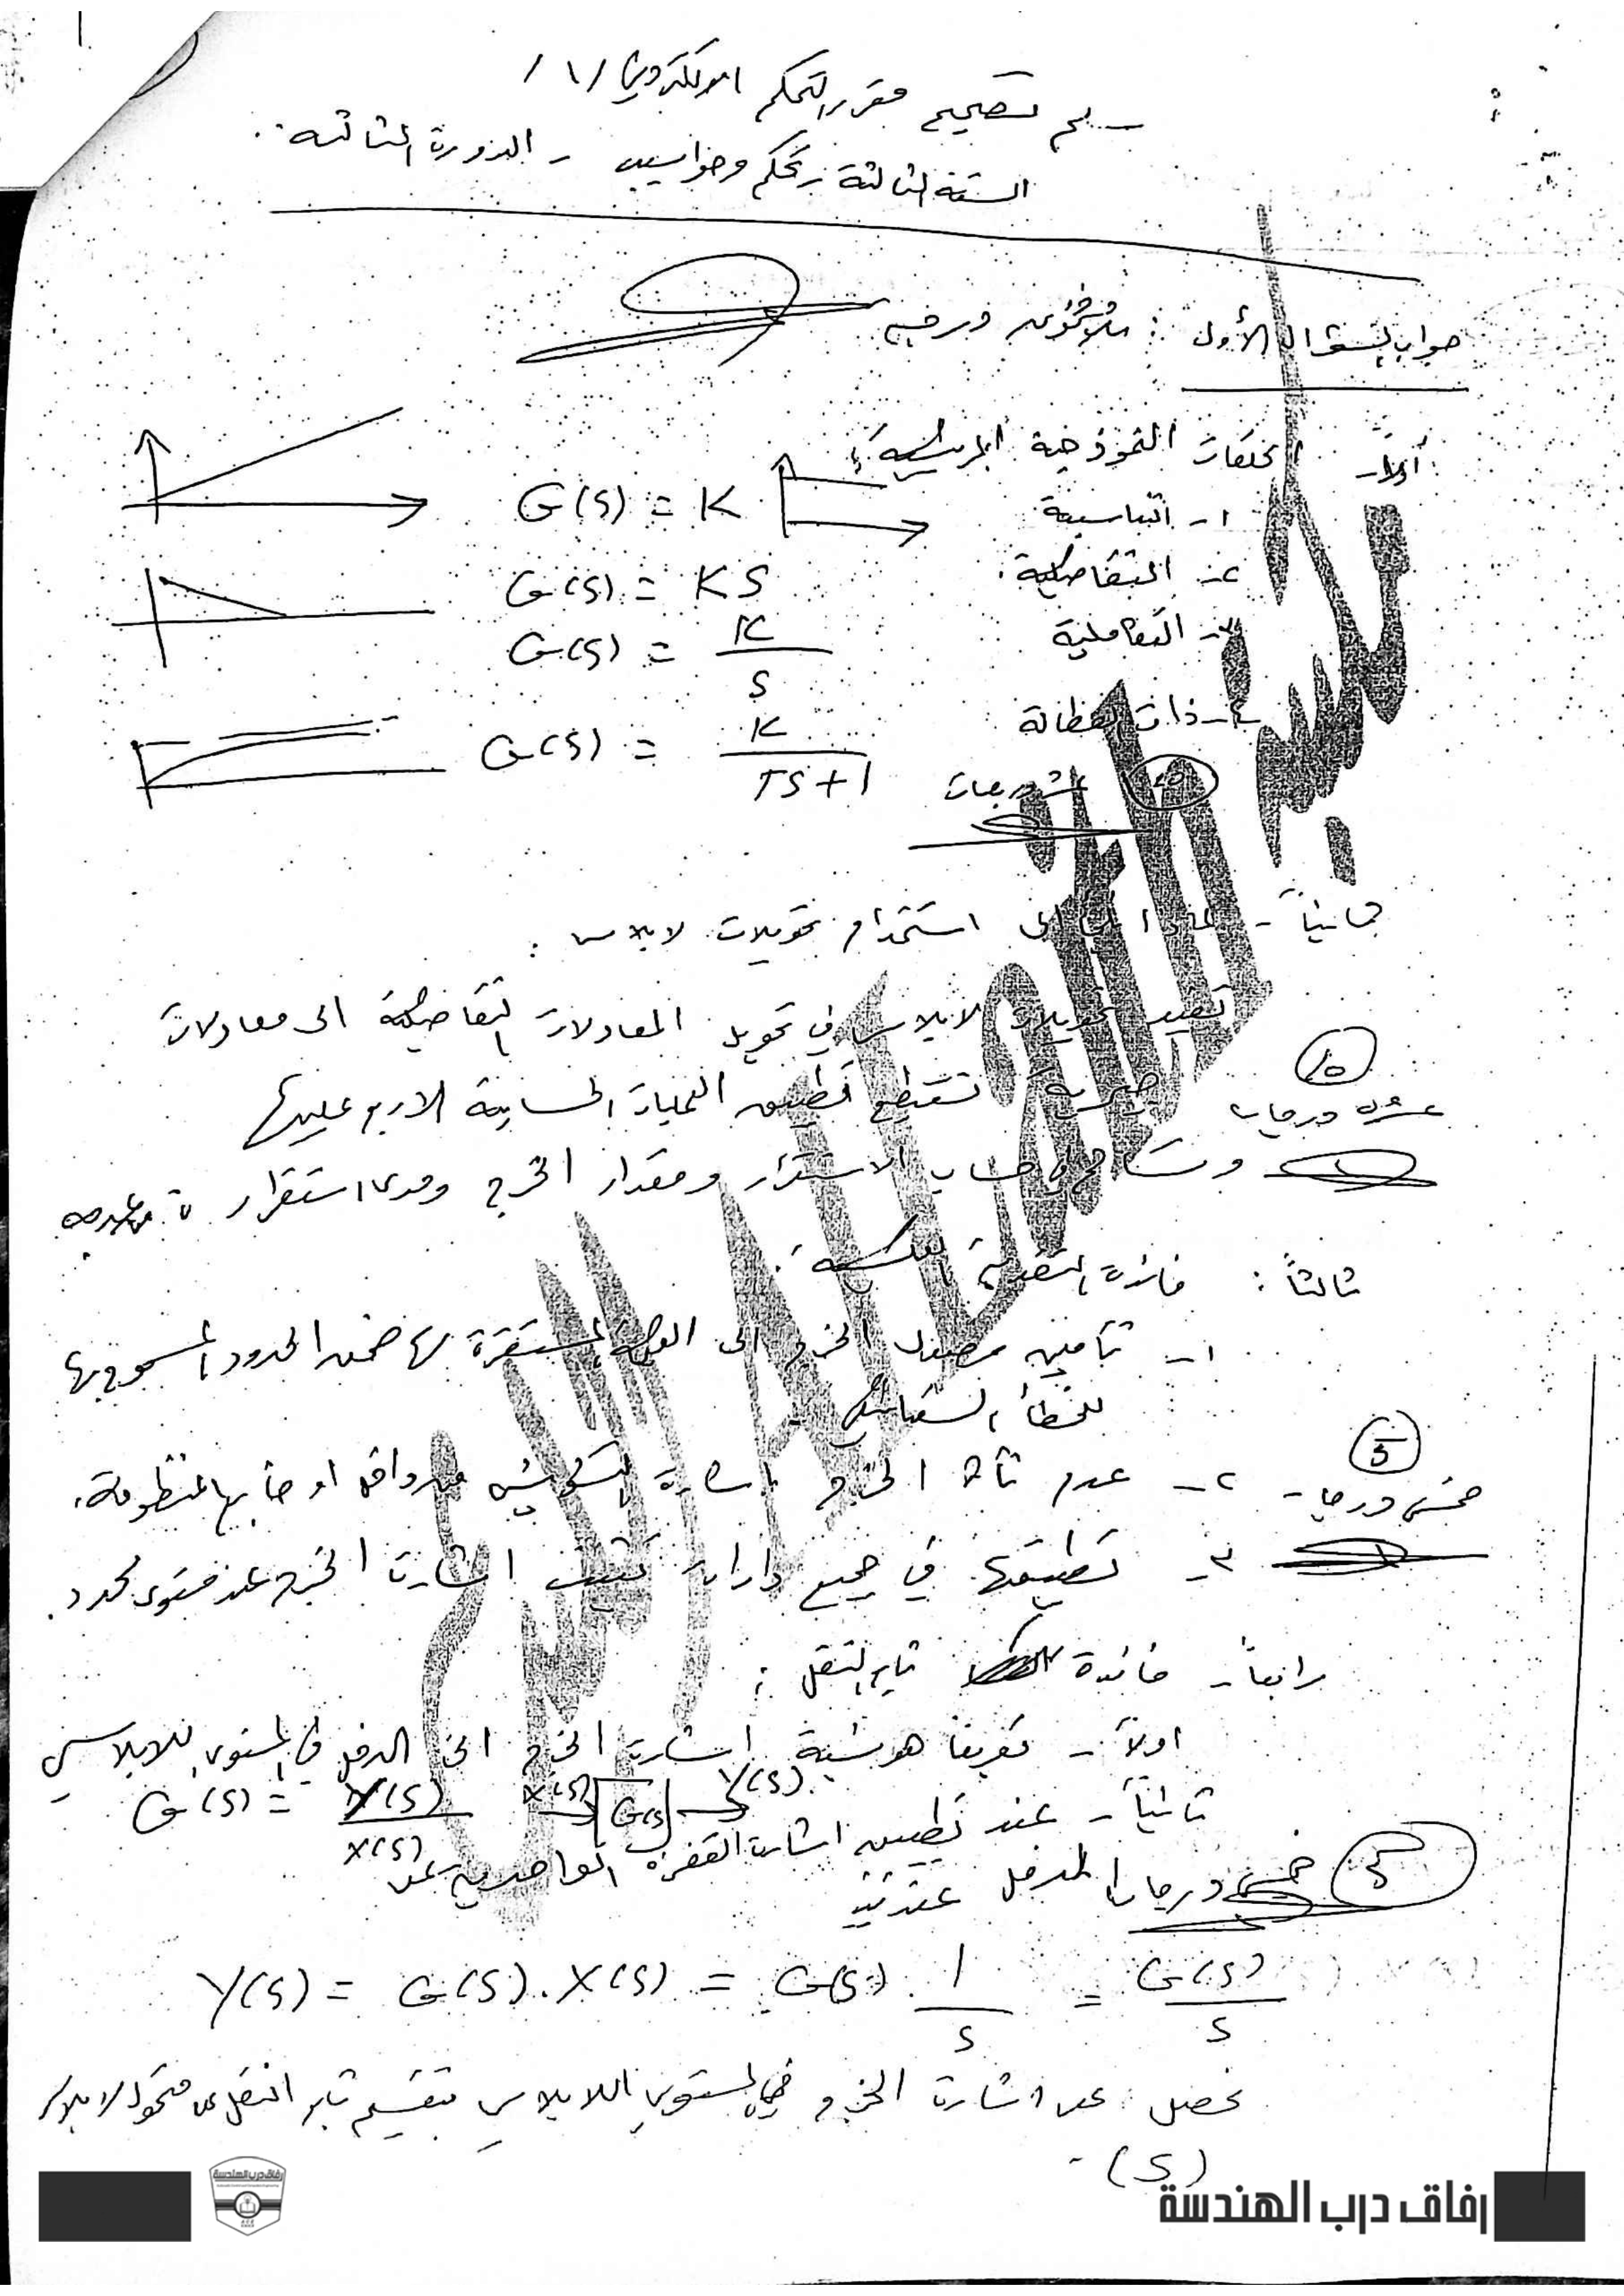 سلم تصحيح مقرر التحكم الالكتروني /١/
السنة الثالثة تحكم وحواسيب - الدورة الثالثة.
جواب السؤال الأول : درجة
أولاً- الحلقات النموذجية الرئيسية:
١- التناسبية G(s) = K
٢- التفاضلية. G(s) = KS
٣- التكاملية G(s) = K / S
٤- ذات العطالة G(s) = K / TS+1
درجات
ثانياً- لماذا نلجأ الى استخدام تحويلات لابلاس :
تفيد تحويلات لابلاس في تحويل المعادلات التفاضلية الى معادلات
جبرية نستطيع تطبيق العمليات الحسابية الاربع عليها
10
عشرة درجات
وتساهم في حساب الاستقرار ومقدار الخرج ومدى استقرار
ثالثاً : فائدة التغذية العكسية :
١- تأمين وصول الخرج الى القيمة المستقرة لها ضمن الحدود المسموح بها
للخطأ الستاتيكي
5
خمس درجات
٢- عدم تأثر الخرج باشارة التشويش من داخل او خارج المنظومة.
٣- تطبيقها في جميع دارات تثبيت اشارة الخرج عند مستوى محدد.
رابعاً- فائدة تابع النقل :
اولاً- تعريفاً هو نسبة اشارة الخرج الى الدخل في المستوي اللابلاسي
G(s) = Y(s) / X(s) X(s) G(s) Y(s)
ثانياً- عند تطبيق اشارة القفزة الواحدية على
المدخل عندئذ
5
خمس درجات
Y(s) = G(s).X(s) = G(s) . 1 / S = G(s) / S
نحصل على اشارة الخرج في المستوي اللابلاسي بتقسيم تابع النقل على متحول لابلاس
(S)
رفاق درب الهندسة